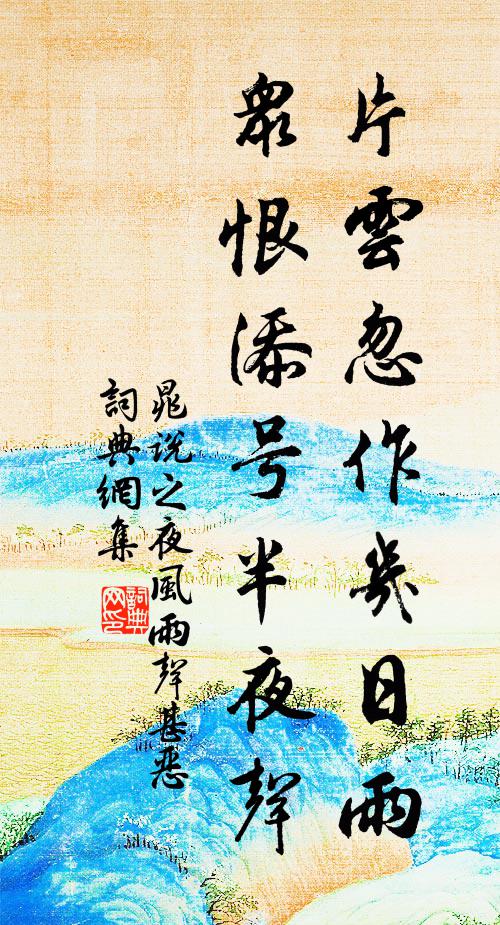 片雲忽作幾日雨
眾恨添号半夜聲
晁說之夜風雨聲甚惡
詞典網集
詞典網印